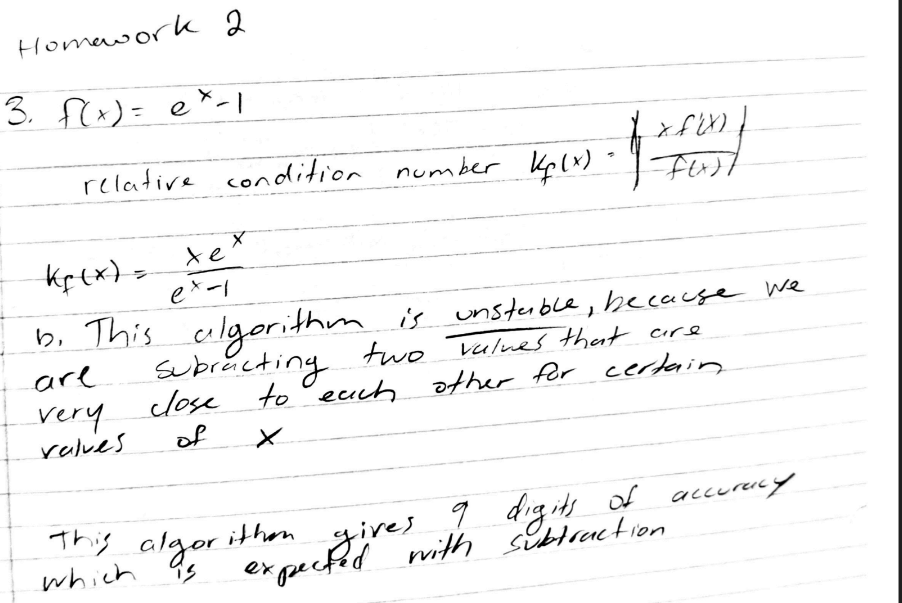 Homework 2
3. f(x) = e^x-1
relative condition number Kf(x) = |xf'(x)/f(x)|
Kf(x) = xe^x/e^x-1
b. This algorithm is unstable, because we
are subracting two values that are
very close to each other for certain
values of x
This algorithm gives 9 digits of accuracy
which is expected with subtraction